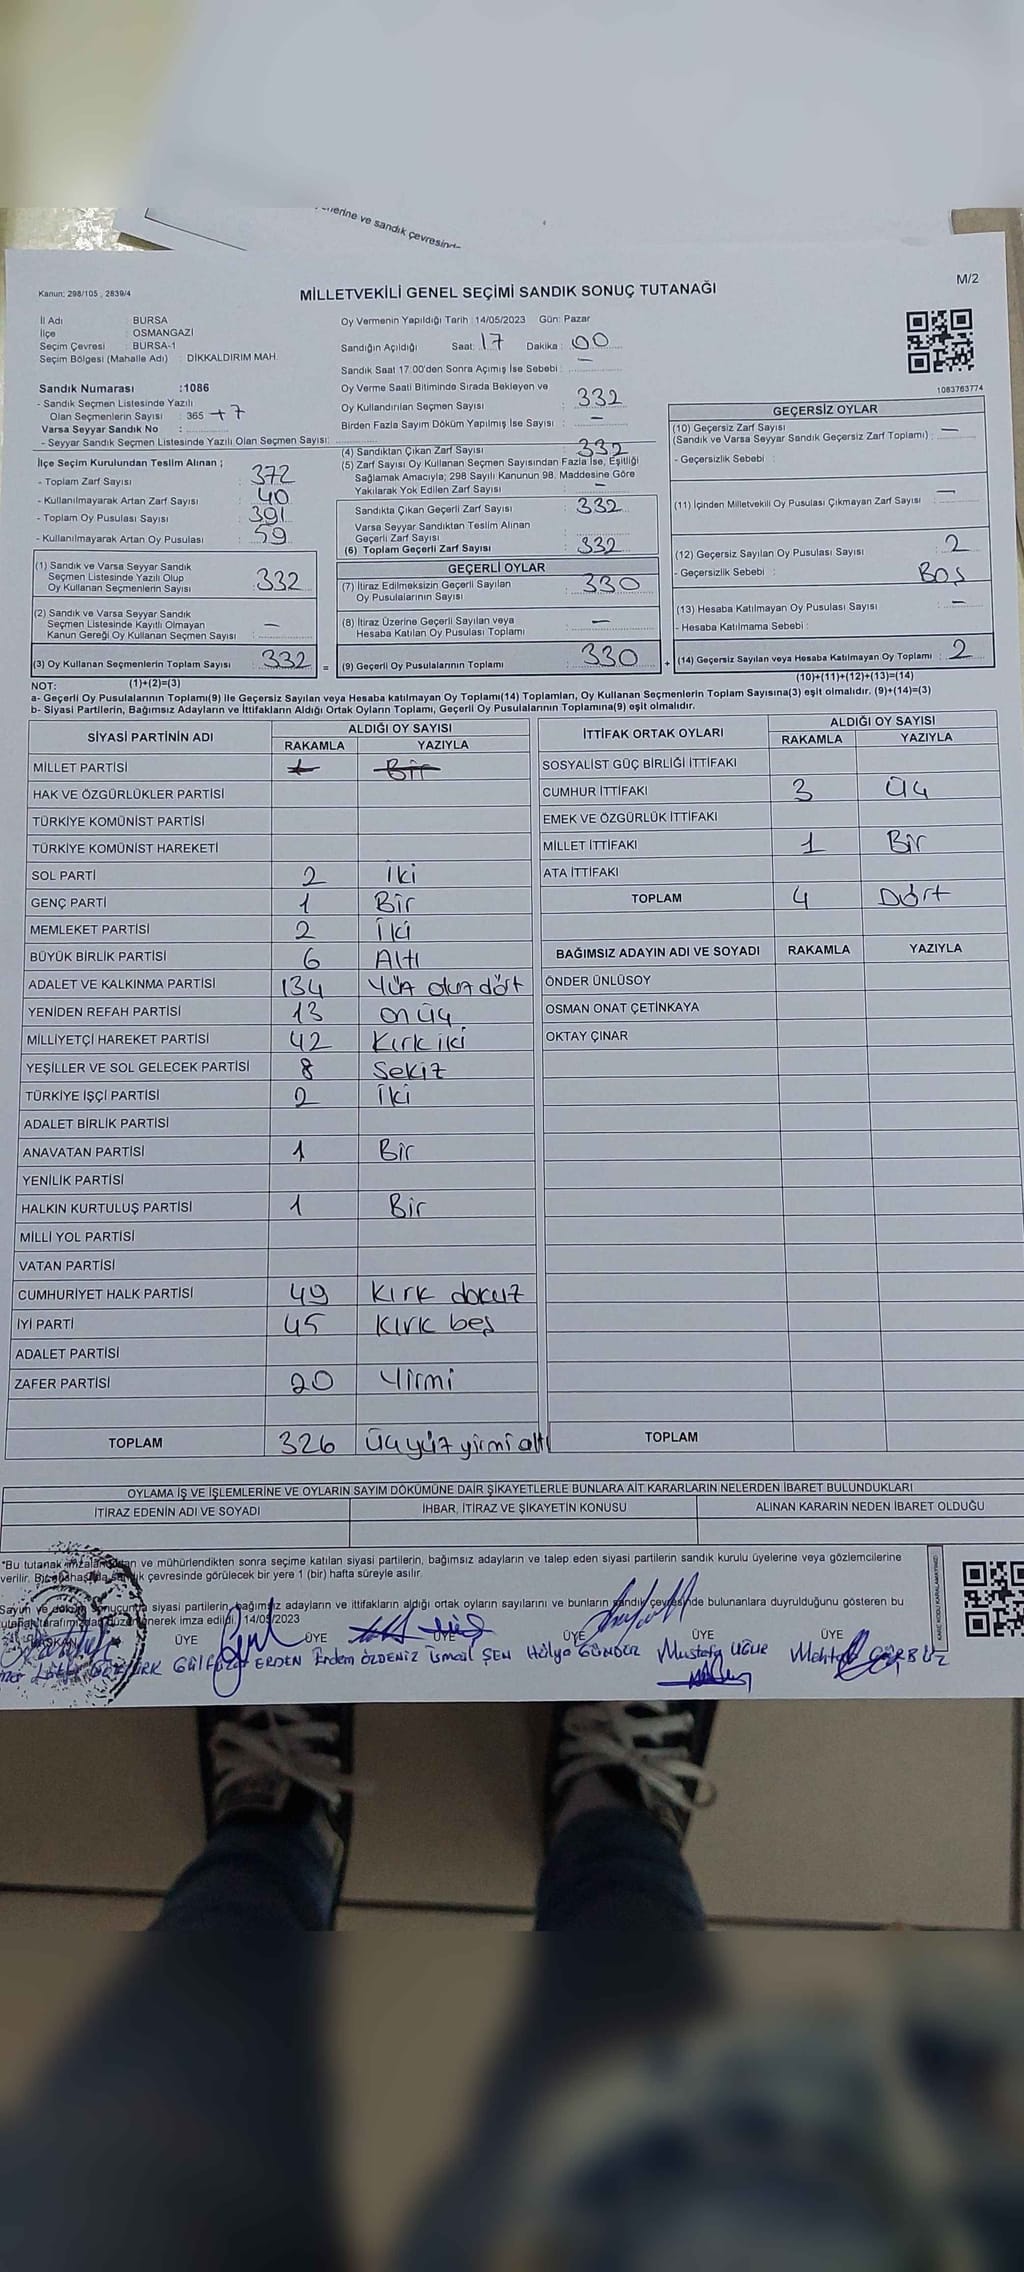 nerine ve sandık çevresind
Kanun: 298/105 , 2839/4
MİLLETVEKİLİ GENEL SEÇİMİ SANDIK SONUÇ TUTANAĞI
M/2
İl Adı : BURSA
İlçe : OSMANGAZİ
Seçim Çevresi : BURSA-1
Seçim Bölgesi (Mahalle Adı) : DİKKALDIRIM MAH.
Sandık Numarası :1086
- Sandık Seçmen Listesinde Yazılı
Olan Seçmenlerin Sayısı : 365 +7
Varsa Seyyar Sandık No :
- Seyyar Sandık Seçmen Listesinde Yazılı Olan Seçmen Sayısı:
İlçe Seçim Kurulundan Teslim Alınan ;
- Toplam Zarf Sayısı : 372
- Kullanılmayarak Artan Zarf Sayısı : 40
- Toplam Oy Pusulası Sayısı : 391
- Kullanılmayarak Artan Oy Pusulası : 59
(1) Sandık ve Varsa Seyyar Sandık
Seçmen Listesinde Yazılı Olup
Oy Kullanan Seçmenlerin Sayısı : 332
(2) Sandık ve Varsa Seyyar Sandık
Seçmen Listesinde Kayıtlı Olmayan
Kanun Gereği Oy Kullanan Seçmen Sayısı : —
(3) Oy Kullanan Seçmenlerin Toplam Sayısı : 332 =
(1)+(2)=(3)
Oy Vermenin Yapıldığı Tarih : 14/05/2023 Gün: Pazar
Sandığın Açıldığı Saat: 17 Dakika : 00
Sandık Saat 17.00'den Sonra Açımış İse Sebebi : —
Oy Verme Saati Bitiminde Sırada Bekleyen ve
Oy Kullandırılan Seçmen Sayısı : 332
Birden Fazla Sayım Döküm Yapılmış İse Sayısı : —
(4) Sandıktan Çıkan Zarf Sayısı : 332
(5) Zarf Sayısı Oy Kullanan Seçmen Sayısından Fazla İse, Eşitliği
Sağlamak Amacıyla; 298 Sayılı Kanunun 98. Maddesine Göre
Yakılarak Yok Edilen Zarf Sayısı : —
Sandıkta Çıkan Geçerli Zarf Sayısı : 332
Varsa Seyyar Sandıktan Teslim Alınan
Geçerli Zarf Sayısı :
(6) Toplam Geçerli Zarf Sayısı : 332
GEÇERLİ OYLAR
(7) İtiraz Edilmeksizin Geçerli Sayılan
Oy Pusulalarının Sayısı : 330
(8) İtiraz Üzerine Geçerli Sayılan veya
Hesaba Katılan Oy Pusulası Toplamı : —
(9) Geçerli Oy Pusulalarının Toplamı : 330 +
1083763774
GEÇERSİZ OYLAR
(10) Geçersiz Zarf Sayısı
(Sandık ve Varsa Seyyar Sandık Geçersiz Zarf Toplamı) : —
- Geçersizlik Sebebi :
(11) İçinden Milletvekil Oy Pusulası Çıkmayan Zarf Sayısı : —
(12) Geçersiz Sayılan Oy Pusulası Sayısı : 2
- Geçersizlik Sebebi : Boş
(13) Hesaba Katılmayan Oy Pusulası Sayısı : —
- Hesaba Katılmama Sebebi :
(14) Geçersiz Sayılan veya Hesaba Katılmayan Oy Toplamı : 2
(10)+(11)+(12)+(13)=(14)
NOT:
a- Geçerli Oy Pusulalarının Toplamı(9) ile Geçersiz Sayılan veya Hesaba katılmayan Oy Toplamı(14) Toplamları, Oy Kullanan Seçmenlerin Toplam Sayısına(3) eşit olmalıdır. (9)+(14)=(3)
b- Siyasi Partilerin, Bağımsız Adayların ve İttifakların Aldığı Ortak Oyların Toplamı, Geçerli Oy Pusulalarının Toplamına(9) eşit olmalıdır.
SİYASİ PARTİNİN ADI ALDIĞI OY SAYISI
RAKAMLA YAZIYLA
MİLLET PARTİSİ 1 Bir
HAK VE ÖZGÜRLÜKLER PARTİSİ
TÜRKİYE KOMÜNİST PARTİSİ
TÜRKİYE KOMÜNİST HAREKETİ
SOL PARTİ 2 İki
GENÇ PARTİ 1 Bir
MEMLEKET PARTİSİ 2 İki
BÜYÜK BİRLİK PARTİSİ 6 Altı
ADALET VE KALKINMA PARTİSİ 134 Yüz otuz dört
YENİDEN REFAH PARTİSİ 13 on üç
MİLLİYETÇİ HAREKET PARTİSİ 42 Kırk iki
YEŞİLLER VE SOL GELECEK PARTİSİ 8 Sekiz
TÜRKİYE İŞÇİ PARTİSİ 2 İki
ADALET BİRLİK PARTİSİ
ANAVATAN PARTİSİ 1 Bir
YENİLİK PARTİSİ
HALKIN KURTULUŞ PARTİSİ 1 Bir
MİLLİ YOL PARTİSİ
VATAN PARTİSİ
CUMHURİYET HALK PARTİSİ 49 Kırk dokuz
İYİ PARTİ 45 Kırk beş
ADALET PARTİSİ
ZAFER PARTİSİ 20 Yirmi
TOPLAM 326 Üçyüz yirmi altı
İTTİFAK ORTAK OYLARI ALDIĞI OY SAYISI
RAKAMLA YAZIYLA
SOSYALİST GÜÇ BİRLİĞİ İTTİFAKI
CUMHUR İTTİFAKI 3 Üç
EMEK VE ÖZGÜRLÜK İTTİFAKI
MİLLET İTTİFAKI 1 Bir
ATA İTTİFAKI
TOPLAM 4 Dört
BAĞIMSIZ ADAYIN ADI VE SOYADI RAKAMLA YAZIYLA
ÖNDER ÜNLÜSOY
OSMAN ONAT ÇETİNKAYA
OKTAY ÇINAR
TOPLAM
OYLAMA İŞ VE İŞLEMLERİNE VE OYLARIN SAYIM DÖKÜMÜNE DAİR ŞİKAYETLERLE BUNLARA AİT KARARLARIN NELERDEN İBARET BULUNDUKLARI
İTİRAZ EDENİN ADI VE SOYADI İHBAR, İTİRAZ VE ŞİKAYETİN KONUSU ALINAN KARARIN NEDEN İBARET OLDUĞU
*Bu tutanak ve mühürlendikten sonra seçime katılan siyasi partilerin, bağımsız adayların ve talep eden siyasi partilerin sandık kurulu üyelerine veya gözlemcilerine
verilir. çevresinde görülecek bir yere 1 (bir) hafta süreyle asılır.
Sayım ve siyasi partilerin, bağımsız adayların ve ittifakların aldığı ortak oyların sayılarını ve bunların sandık çevresinde bulunanlara duyrulduğunu gösteren bu
imza edildi. 14/05/2023
KARE KODU KARALAMAYINIZ!
BAŞKAN ÜYE ÜYE ÜYE ÜYE ÜYE ÜYE
ERDEN Erdem ÖZDENİZ İsmail ŞEN Hülya GÜNGÖR Mustafa UĞUR GÜRBÜZ